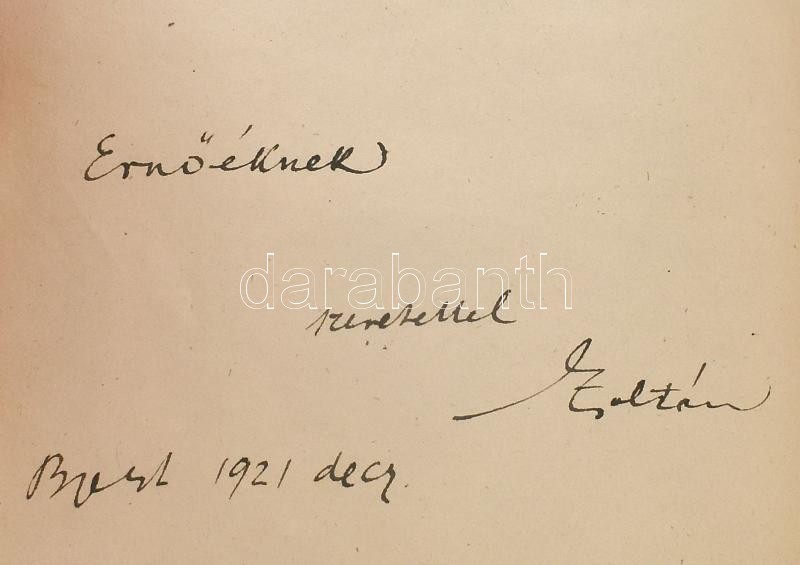 Ernőéknek
darabanth
szeretettel
Zoltán
Bpest 1921 decz.